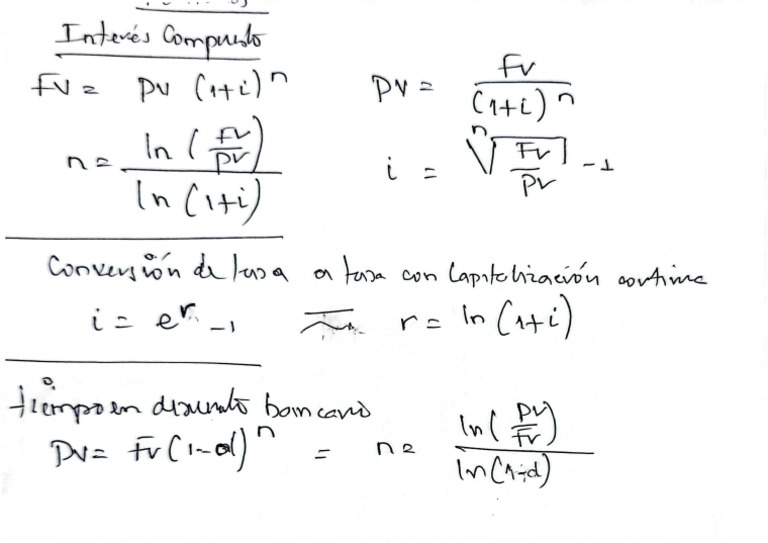 Interés Compuesto
FV = PV (1+i)^n    PV = FV / (1+i)^n
n = ln (FV/PV) / ln (1+i)    i = ⁿ√(FV/PV) - 1
Conversión de tasa a tasa con Capitalización continua
i = e^r - 1    r = ln (1+i)
tiempo en descuento bancario
PV = FV (1-d)^n = n = ln (PV/FV) / ln (1-d)